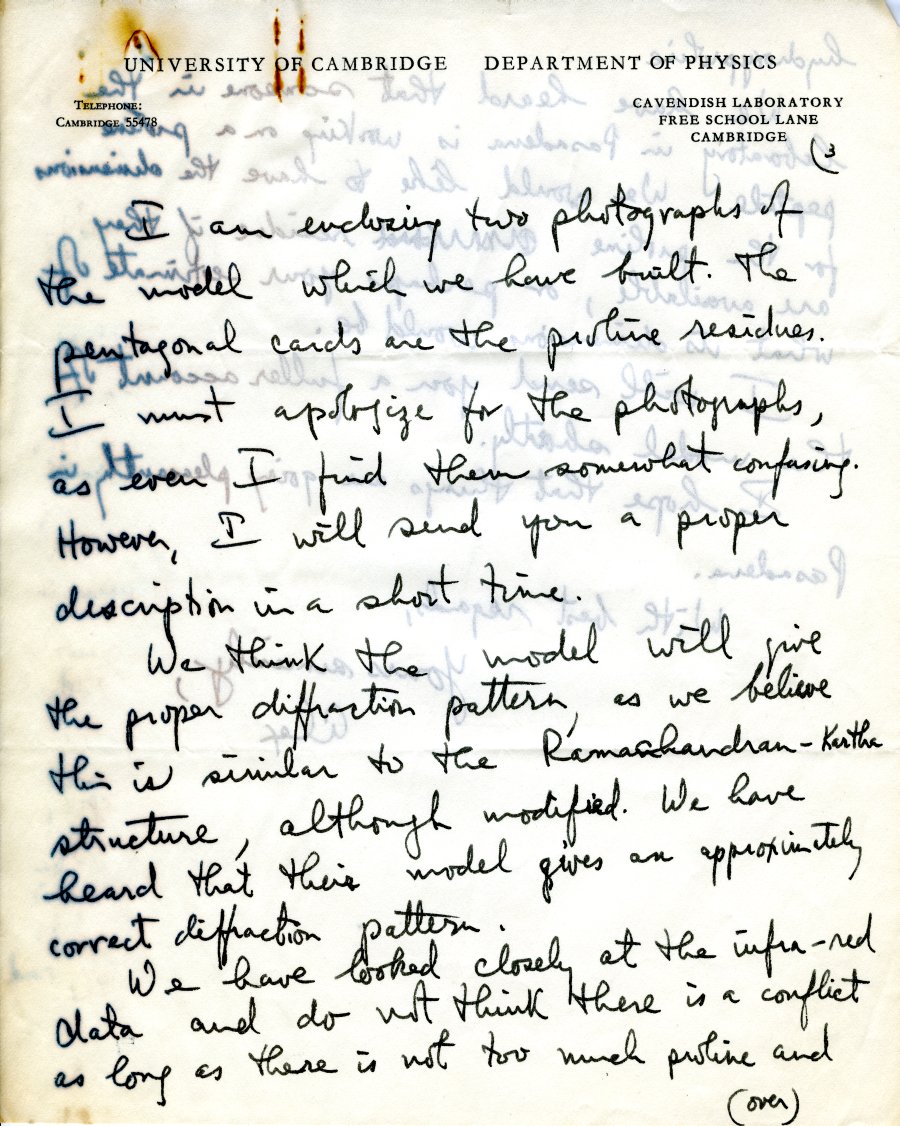 UNIVERSITY OF CAMBRIDGE DEPARTMENT OF PHYSICS
TELEPHONE:
CAMBRIDGE 55478
CAVENDISH LABORATORY
FREE SCHOOL LANE
CAMBRIDGE
(3
I am enclosing two photographs of
the model which we have built. The
pentagonal cards are the proline residues.
I must apologize for the photographs,
as even I find them somewhat confusing.
However, I will send you a proper
description in a short time.
We think the model will give
the proper diffraction pattern, as we believe
this is similar to the Ramachandran-Kartha
structure, although modified. We have
heard that their model gives an approximately
correct diffraction pattern.
We have looked closely at the infra-red
data and do not think there is a conflict
as long as there is not too much proline and
(over)